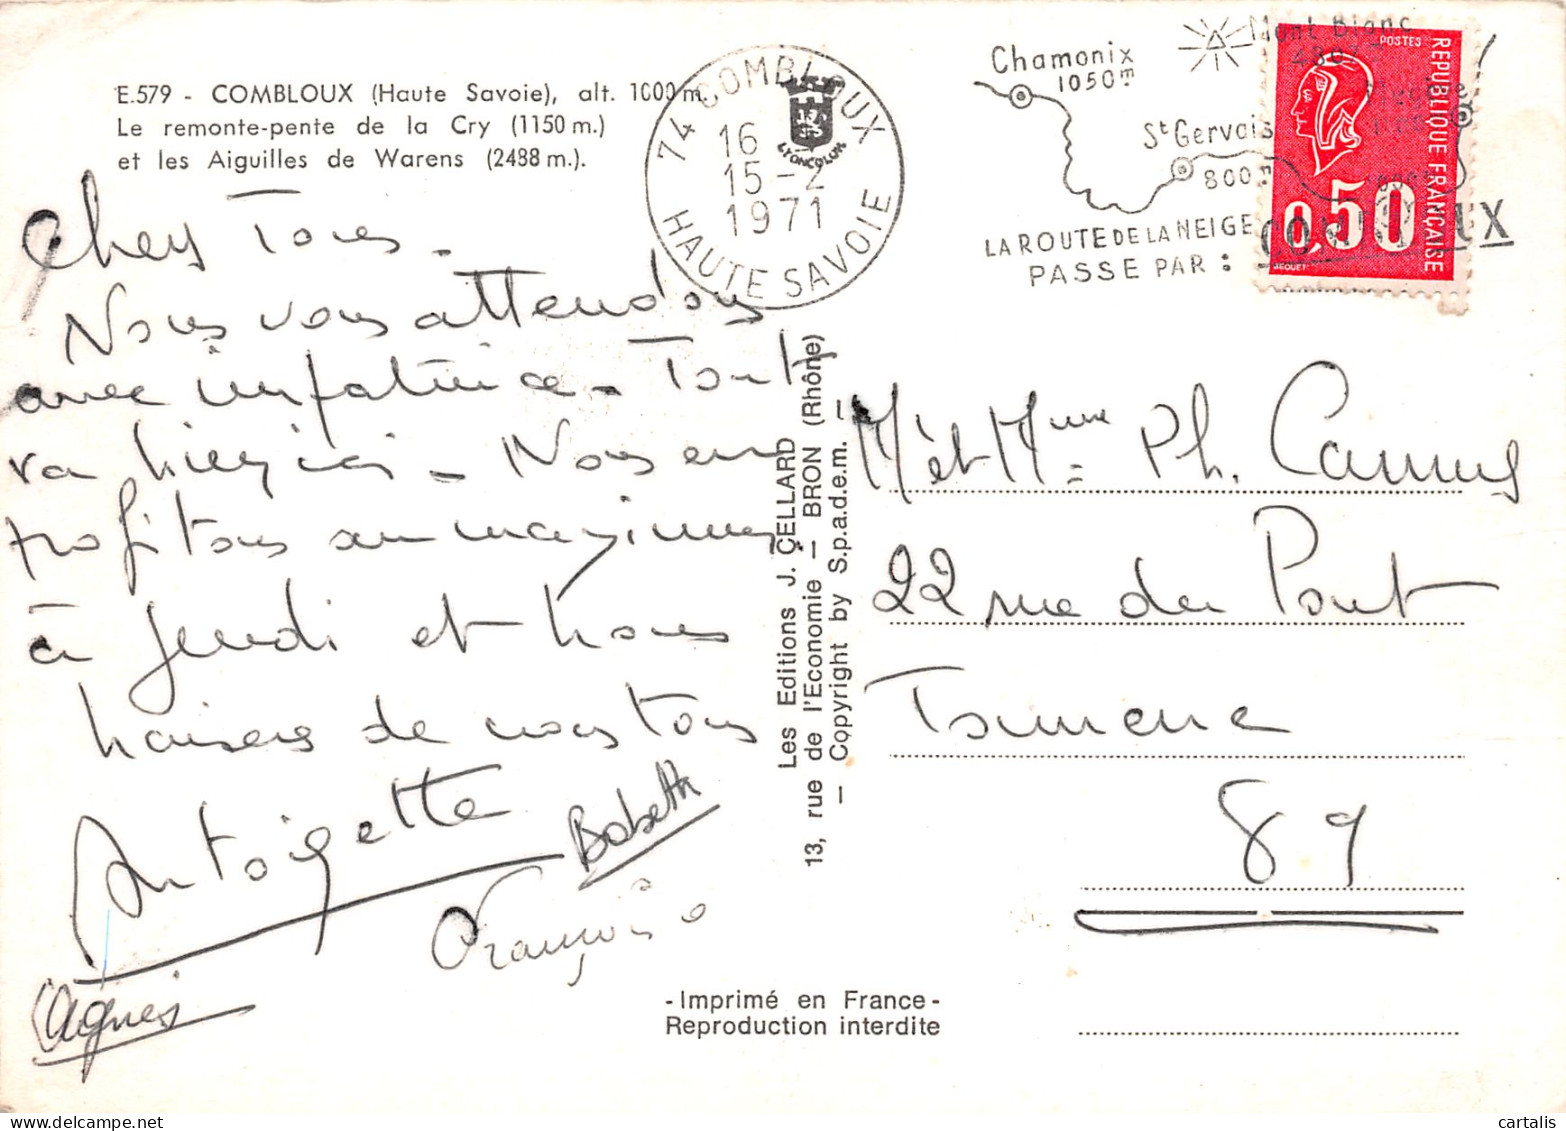 E.579 - COMBLOUX (Haute Savoie), alt. 1000 m.
Le remonte-pente de la Cry (1150 m.)
et les Aiguilles de Warens (2488 m.).
74 COMBLOUX
16 -
15-2
1971
HAUTE SAVOIE
LYONCOLOR
Chamonix
1050m
Mont Blanc
St Gervais
800m
LA ROUTE DE LA NEIGE
PASSE PAR :
POSTES
REPUBLIQUE FRANÇAISE
0,50
Chers Tous -
Nous vous attendons
avec impatience - Tout
va bien ici - Nous en
profitons au maximum
à jeudi et bons
baisers de nous tous
Antoinette
Babeth
Françoise
Agnès
Les Editions J. CELLARD
13, rue de l'Economie - BRON (Rhône)
- Copyright by S.p.a.d.e.m. -
M et Mme Ph. Camus
22 rue du Pont
89
-Imprimé en France-
Reproduction interdite
cartalis